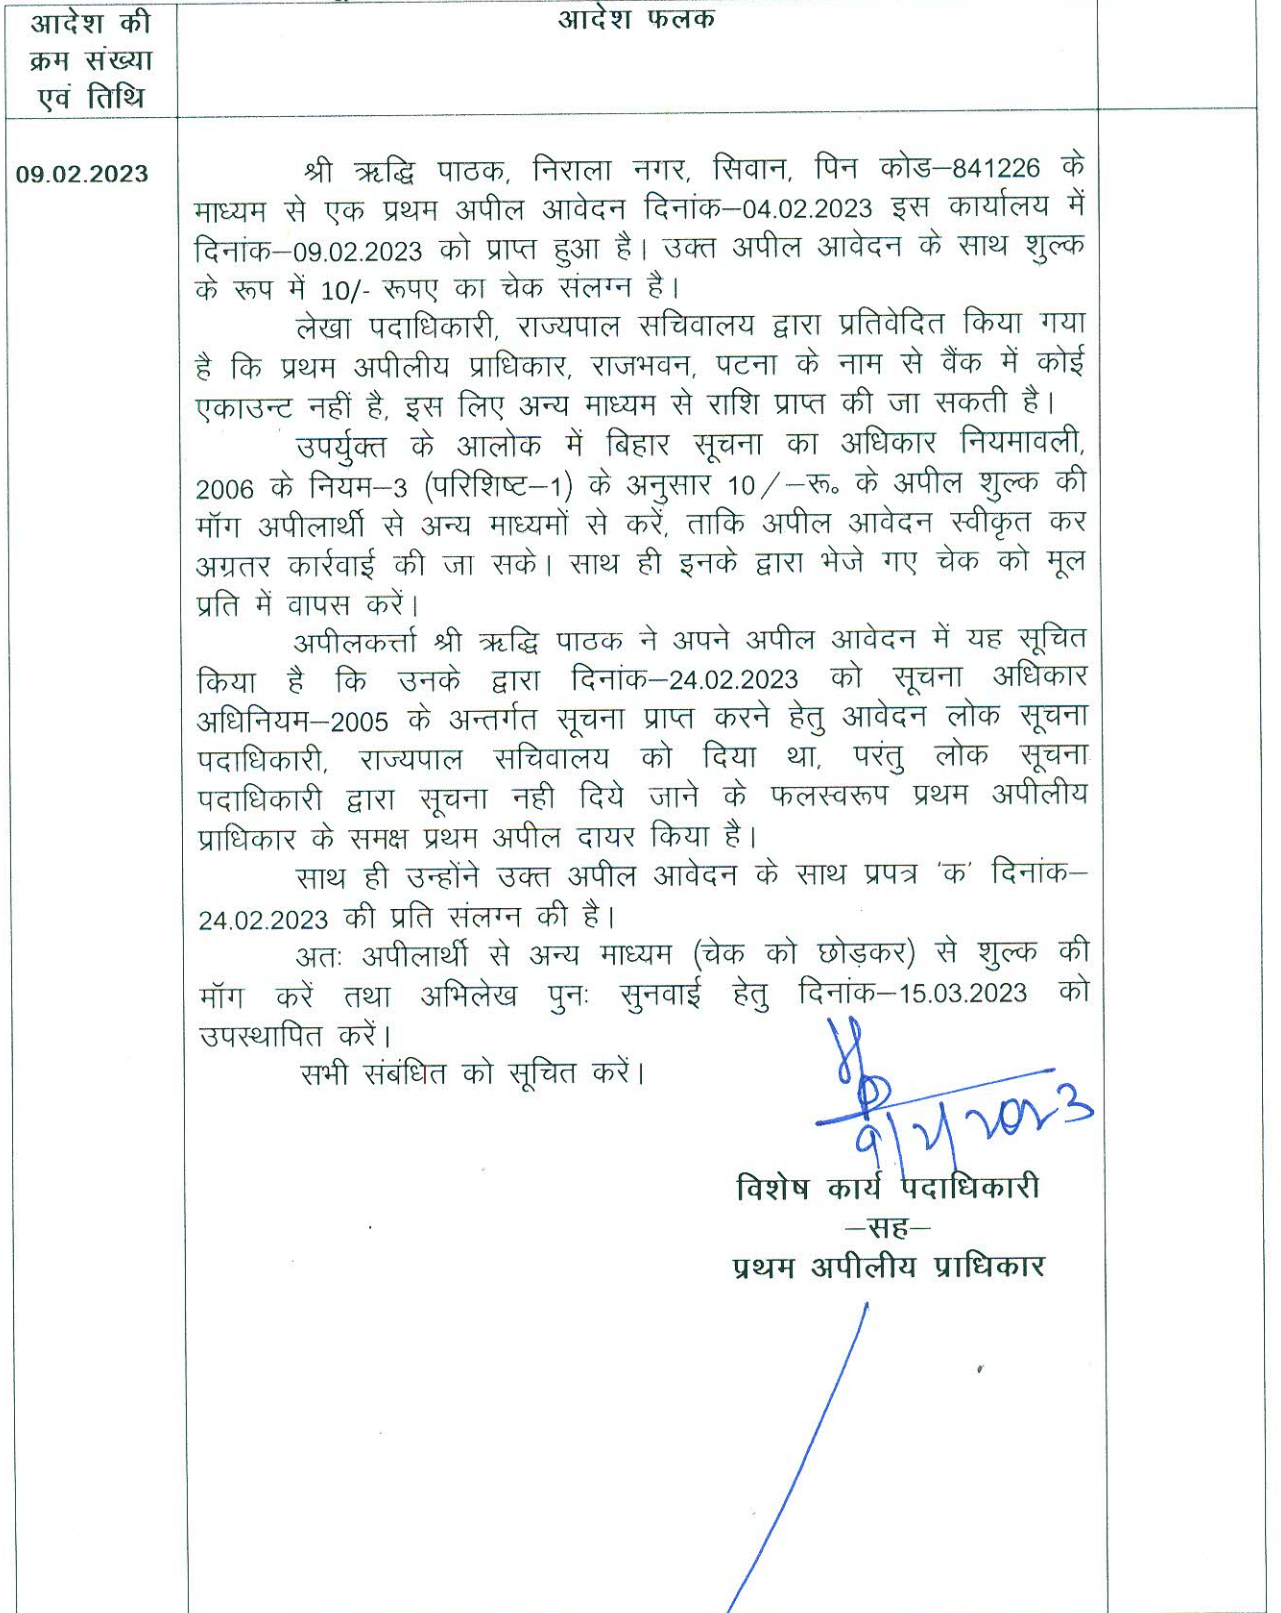 आदेश की
क्रम संख्या
एवं तिथि
आदेश फलक
09.02.2023
श्री ऋद्धि पाठक, निराला नगर, सिवान, पिन कोड–841226 के
माध्यम से एक प्रथम अपील आवेदन दिनांक–04.02.2023 इस कार्यालय में
दिनांक–09.02.2023 को प्राप्त हुआ है। उक्त अपील आवेदन के साथ शुल्क
के रूप में 10/- रूपए का चेक संलग्न है।
लेखा पदाधिकारी, राज्यपाल सचिवालय द्वारा प्रतिवेदित किया गया
है कि प्रथम अपीलीय प्राधिकार, राजभवन, पटना के नाम से वैंक में कोई
एकाउन्ट नहीं है, इस लिए अन्य माध्यम से राशि प्राप्त की जा सकती है।
उपर्युक्त के आलोक में बिहार सूचना का अधिकार नियमावली,
2006 के नियम–3 (परिशिष्ट–1) के अनुसार 10/–रू० के अपील शुल्क की
मॉग अपीलार्थी से अन्य माध्यमों से करें, ताकि अपील आवेदन स्वीकृत कर
अग्रतर कार्रवाई की जा सके। साथ ही इनके द्वारा भेजे गए चेक को मूल
प्रति में वापस करें।
अपीलकर्त्ता श्री ऋद्धि पाठक ने अपने अपील आवेदन में यह सूचित
किया है कि उनके द्वारा दिनांक–24.02.2023 को सूचना अधिकार
अधिनियम–2005 के अन्तर्गत सूचना प्राप्त करने हेतु आवेदन लोक सूचना
पदाधिकारी, राज्यपाल सचिवालय को दिया था, परंतु लोक सूचना
पदाधिकारी द्वारा सूचना नही दिये जाने के फलस्वरूप प्रथम अपीलीय
प्राधिकार के समक्ष प्रथम अपील दायर किया है।
साथ ही उन्होंने उक्त अपील आवेदन के साथ प्रपत्र 'क' दिनांक–
24.02.2023 की प्रति संलग्न की है।
अतः अपीलार्थी से अन्य माध्यम (चेक को छोड़कर) से शुल्क की
मॉग करें तथा अभिलेख पुनः सुनवाई हेतु दिनांक–15.03.2023 को
उपस्थापित करें।
सभी संबंधित को सूचित करें।
9/2/2023
विशेष कार्य पदाधिकारी
–सह–
प्रथम अपीलीय प्राधिकार